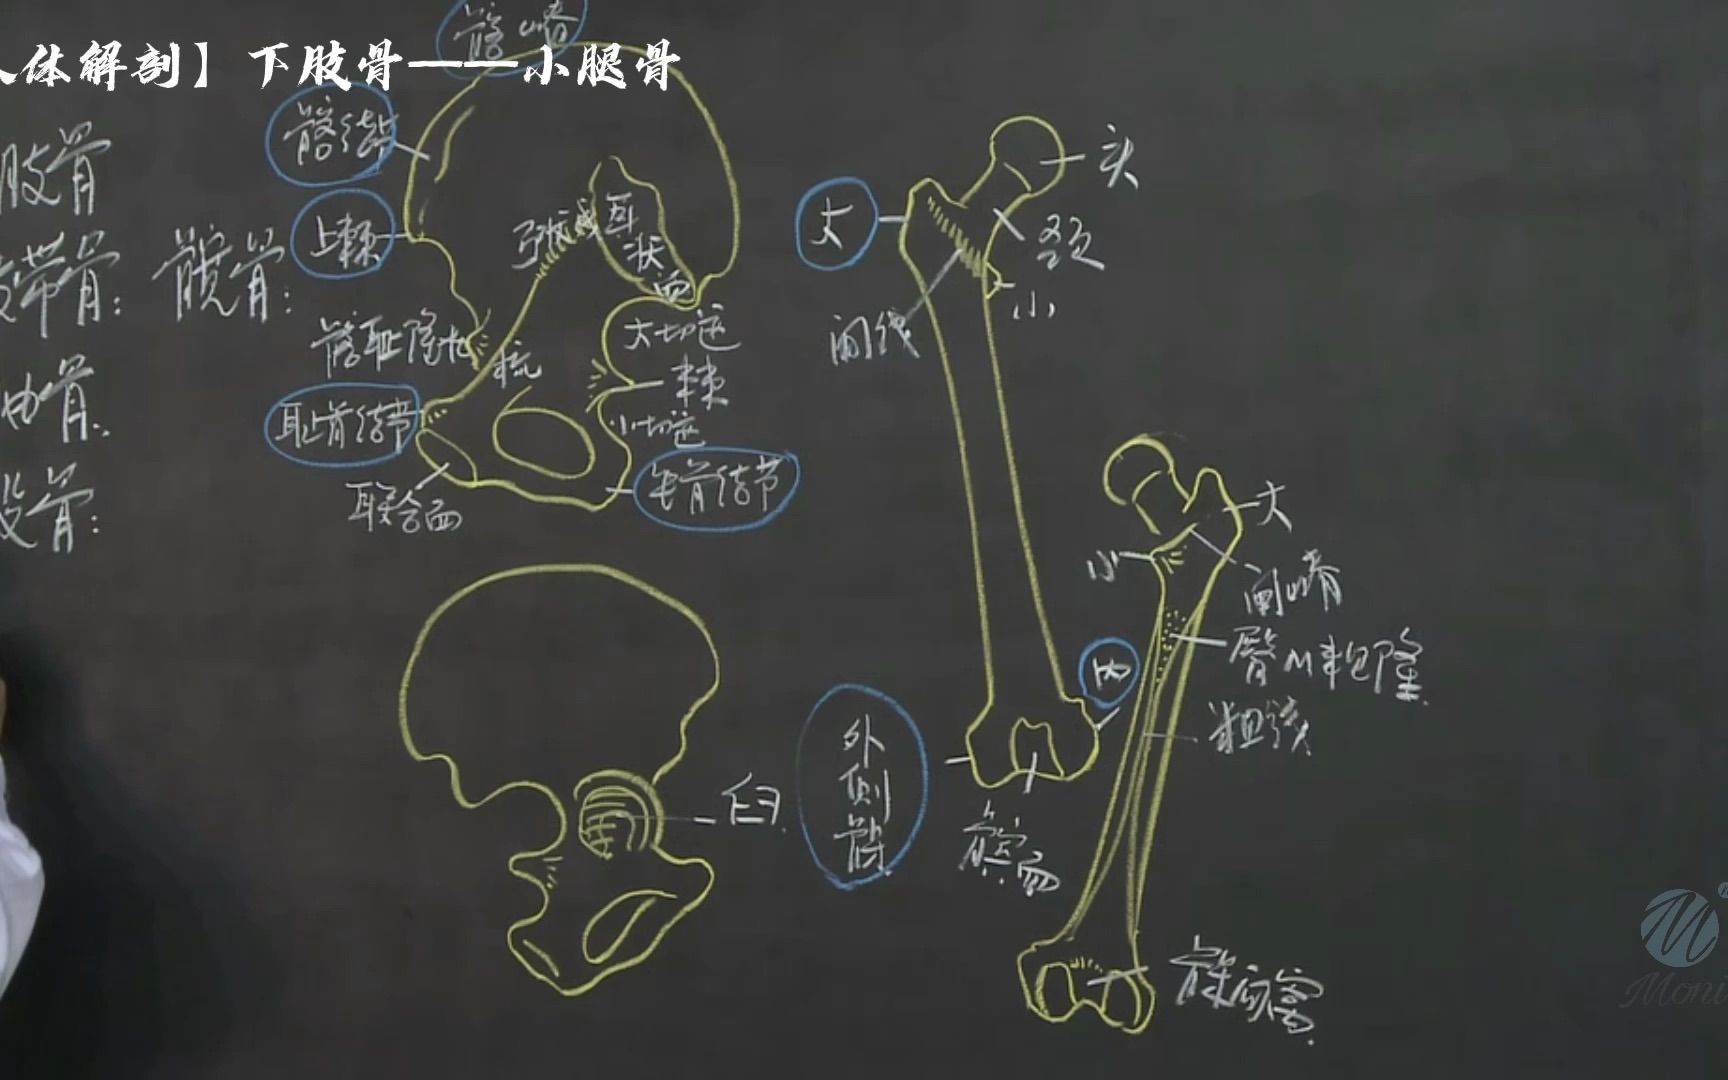 人体解剖】下肢骨——小腿骨
髂嵴
髂结节
上棘
肢骨
带骨：髋骨：
弓状线
耳状面
髂耻隆起
梳
大切迹
棘
小切迹
耻骨结节
坐骨结节
联合面
臼
头
大
颈
小
间线
内
外侧髁
髌面
大
小
间嵴
臀M粗隆
粗线
髁间窝